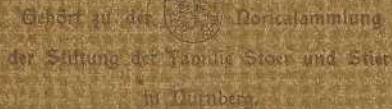 Gehört zu der Noricasammlung
der Stiftung der Familie Stoer und Stier
in Nürnberg.